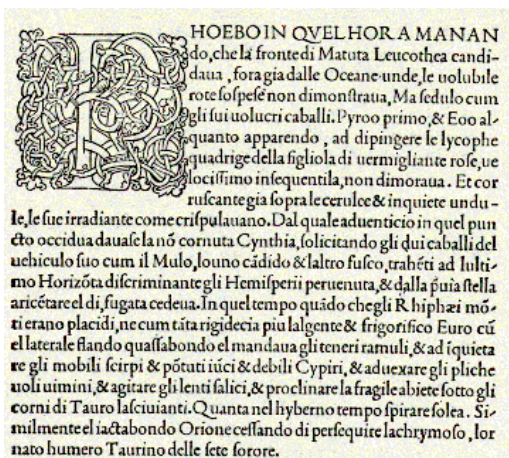 P HOEBO IN QVEL HORA MANAN
do, che la fronte di Matuta Leucothea candi-
daua, fora gia dalle Oceane unde, le uolubile
rote sospese non dimonstraua, Ma sedulo cum
gli sui uolucri caballi. Pyroo primo, & Eoo al-
quanto apparendo, ad dipingere le lycophe
quadrige della figliola di uermigliante rose, ue
locissimo insequentila, non dimoraua. Et cor
ruscante gia sopra le cerulee & inquiete undu-
le, le sue irradiante come crispulauano. Dal quale aduenticio in quel pun
cto occidua dauase la nõ cornuta Cynthia, solicitando gli dui caballi del
uehiculo suo cum il Mulo, louno cãdido & laltro fusco, trahẽti ad lulti-
mo Horizõta discriminante gli Hemisperii peruenuta, & dalla puia stella
aricẽtare el di, fugata cedeua. In quel tempo quãdo che gli Rhiphæi mõ-
ti erano placidi, ne cum tãta rigidecia piu lalgente & frigorifico Euro cũ
el laterale flando quassabondo el mandaua gli teneri ramuli, & ad ĩquieta
re gli mobili scirpi & põtuti iũci & debili Cypiri, & aduexare gli pliche
uoli uimini, & agitare gli lenti salici, & proclinare la fragile abiete sotto gli
corni di Tauro lasciuianti. Quanta nel hyberno tempo spirare solea. Si-
milmente el iactabondo Orione cessando di persequire lachrymoso, lor
nato humero Taurino delle sete sorore.